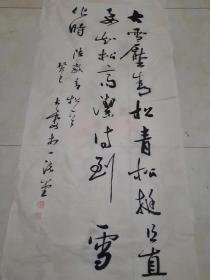 大雪压青松青松挺且直
要知松高洁待到雪
化时 陈毅青松
癸巳